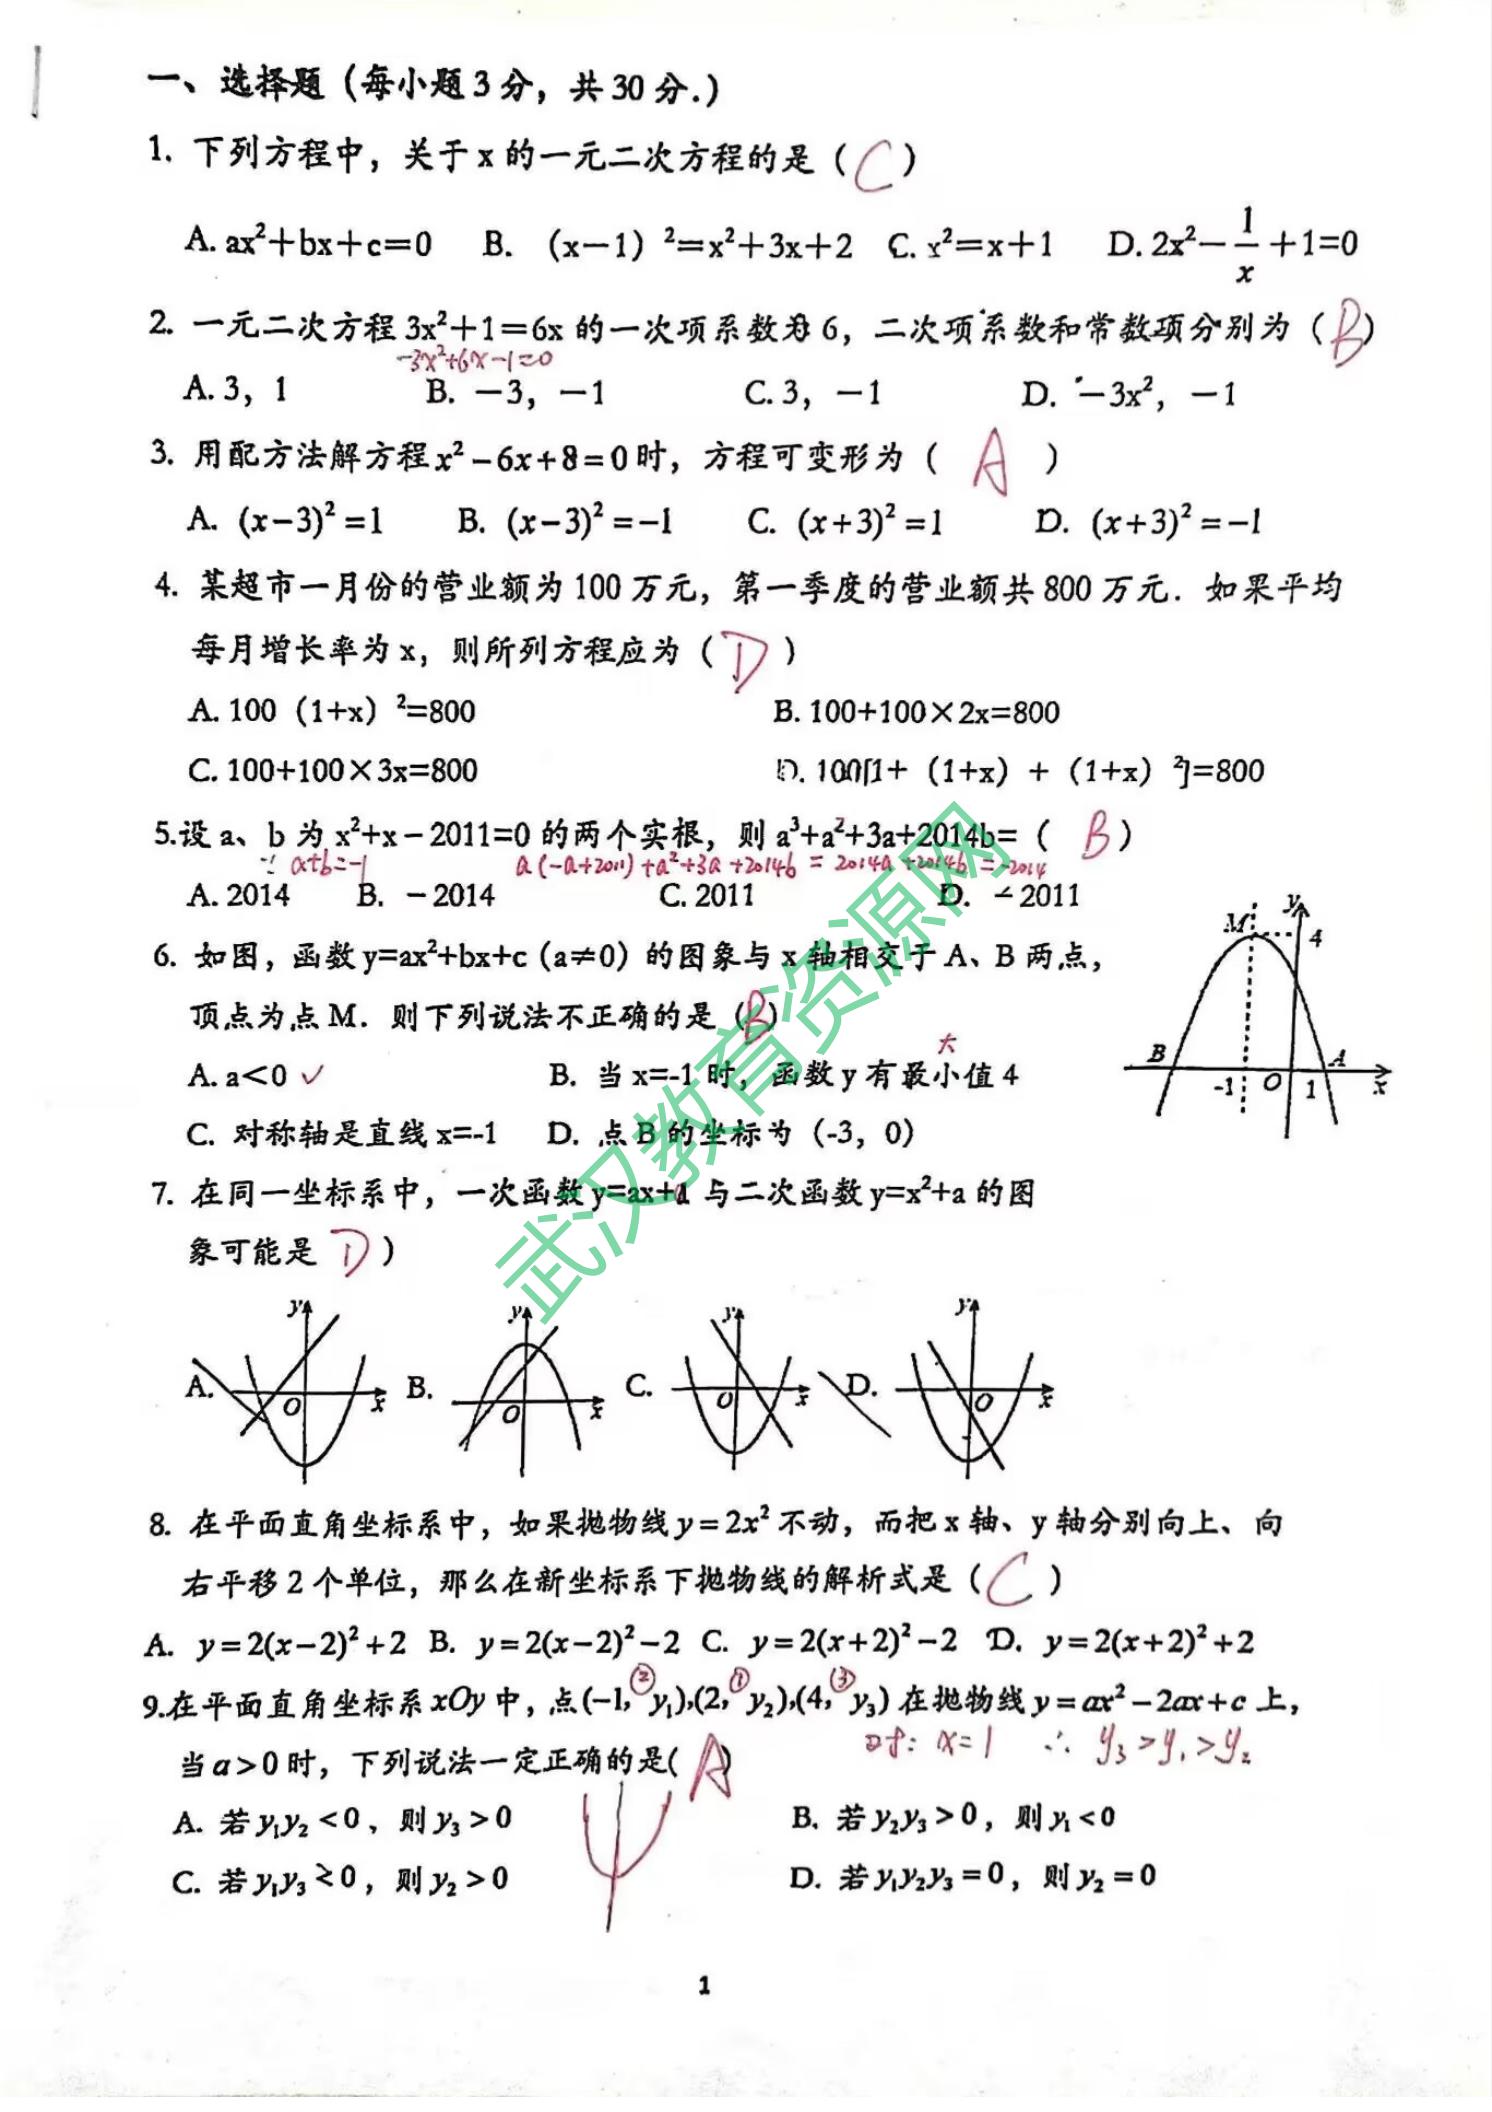 一、选择题（每小题3分，共30分.）
1. 下列方程中，关于x的一元二次方程的是（ C ）
A. ax²+bx+c=0 B. （x－1）²=x²+3x+2 C. x²=x+1 D. 2x²－1/x+1=0
2. 一元二次方程3x²+1=6x的一次项系数为6，二次项系数和常数项分别为（ B ）
-3x²+6x-1=0
A. 3，1 B. －3，－1 C. 3，－1 D. －3x²，－1
3. 用配方法解方程x²－6x+8=0时，方程可变形为（ A ）
A. (x－3)²=1 B. (x－3)²=－1 C. (x+3)²=1 D. (x+3)²=－1
4. 某超市一月份的营业额为100万元，第一季度的营业额共800万元．如果平均
每月增长率为x，则所列方程应为（ D ）
A. 100（1+x）²=800 B. 100+100×2x=800
C. 100+100×3x=800 D. 100[1+（1+x）+（1+x）²]=800
5.设a、b为x²+x－2011=0的两个实根，则a³+a²+3a+2014b=（ B ）
∵ a+b=-1 a(-a+2011)+a²+3a+2014b = 2014a+2014b = -2014
A. 2014 B. －2014 C. 2011 D. －2011
6. 如图，函数y=ax²+bx+c（a≠0）的图象与x轴相交于A、B两点，
顶点为点M．则下列说法不正确的是（B）
大
A. a＜0 ✓ B. 当x=-1时，函数y有最小值4
C. 对称轴是直线x=-1 D. 点B的坐标为（-3，0）
M y 4
B A
-1 O 1 x
7. 在同一坐标系中，一次函数y=ax+a与二次函数y=x²+a的图
象可能是 D ）
y y y y
A. O x B. O x C. O x D. O x
8. 在平面直角坐标系中，如果抛物线y=2x²不动，而把x轴、y轴分别向上、向
右平移2个单位，那么在新坐标系下抛物线的解析式是（ C ）
A. y=2(x－2)²+2 B. y=2(x－2)²－2 C. y=2(x+2)²－2 D. y=2(x+2)²+2
② ① ③
9.在平面直角坐标系xOy中，点(－1, y₁),(2, y₂),(4, y₃)在抛物线y=ax²－2ax+c上，
x=1 ∴ y₃>y₁>y₂
当a>0时，下列说法一定正确的是( A )
A. 若y₁y₂<0，则y₃>0 B. 若y₂y₃>0，则y₁<0
C. 若y₁y₃≥0，则y₂>0 D. 若y₁y₂y₃=0，则y₂=0
1
武汉教育资源网